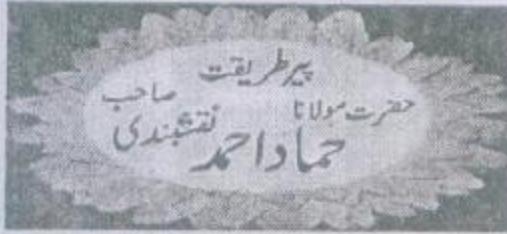 پیر طریقت
حضرت مولانا حماد احمد نقشبندی صاحب